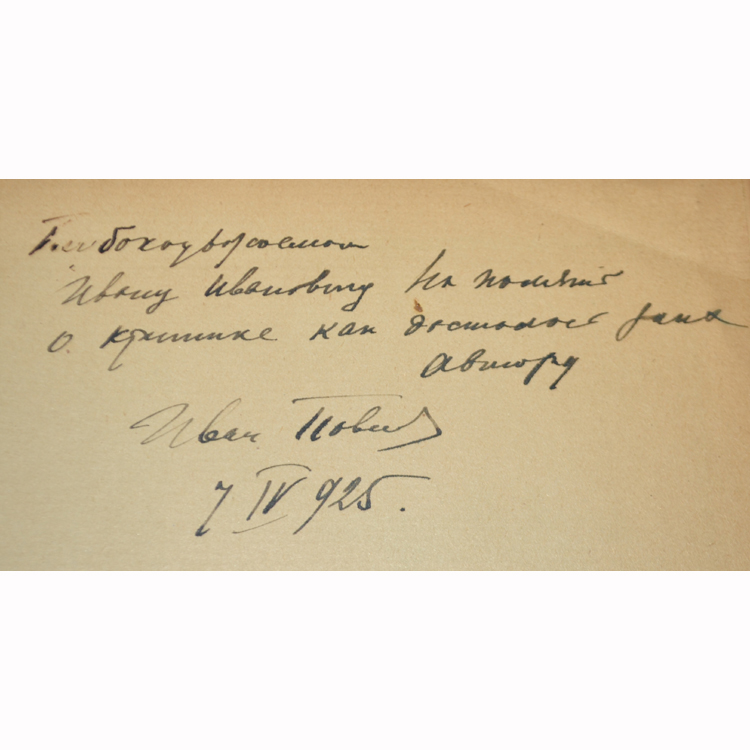 Глубокоуважаемому
Ивану Ивановичу на память
о критике как досталось
автору
Иван
7 IV 925.